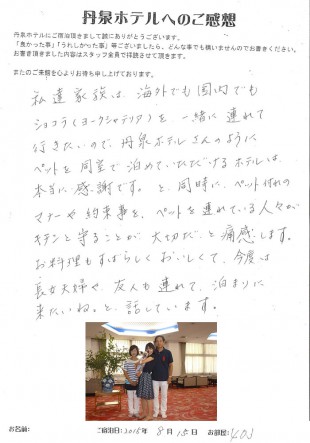 丹泉ホテルへのご感想
丹泉ホテルにご宿泊頂きまして誠にありがとうございます。
「良かった事」「うれしかった事」等ございましたら、どんな事でも構いませんのでお書きください。
お書き頂きました内容はスタッフ全員で拝読させて頂きます。
またのご来館を心よりお待ち申し上げております。
私達家族は、海外でも国内でも
ショコラ(ヨークシャテリア)を一緒に連れて
行きたいので、丹泉ホテルさんのように
ペットを同室で泊めていただけるホテルは、
本当に感謝です。と、同時に、ペット付れの
マナーや約束事を、ペットを連れている人々が
キチンと守ることが大切だと痛感します。
お料理もすばらしくおいしくて、今度は
長女夫婦や友人も連れて、泊まりに
来たいね。と、話しています。
お名前: ご宿泊日:2015年 8月 15日 お部屋:403